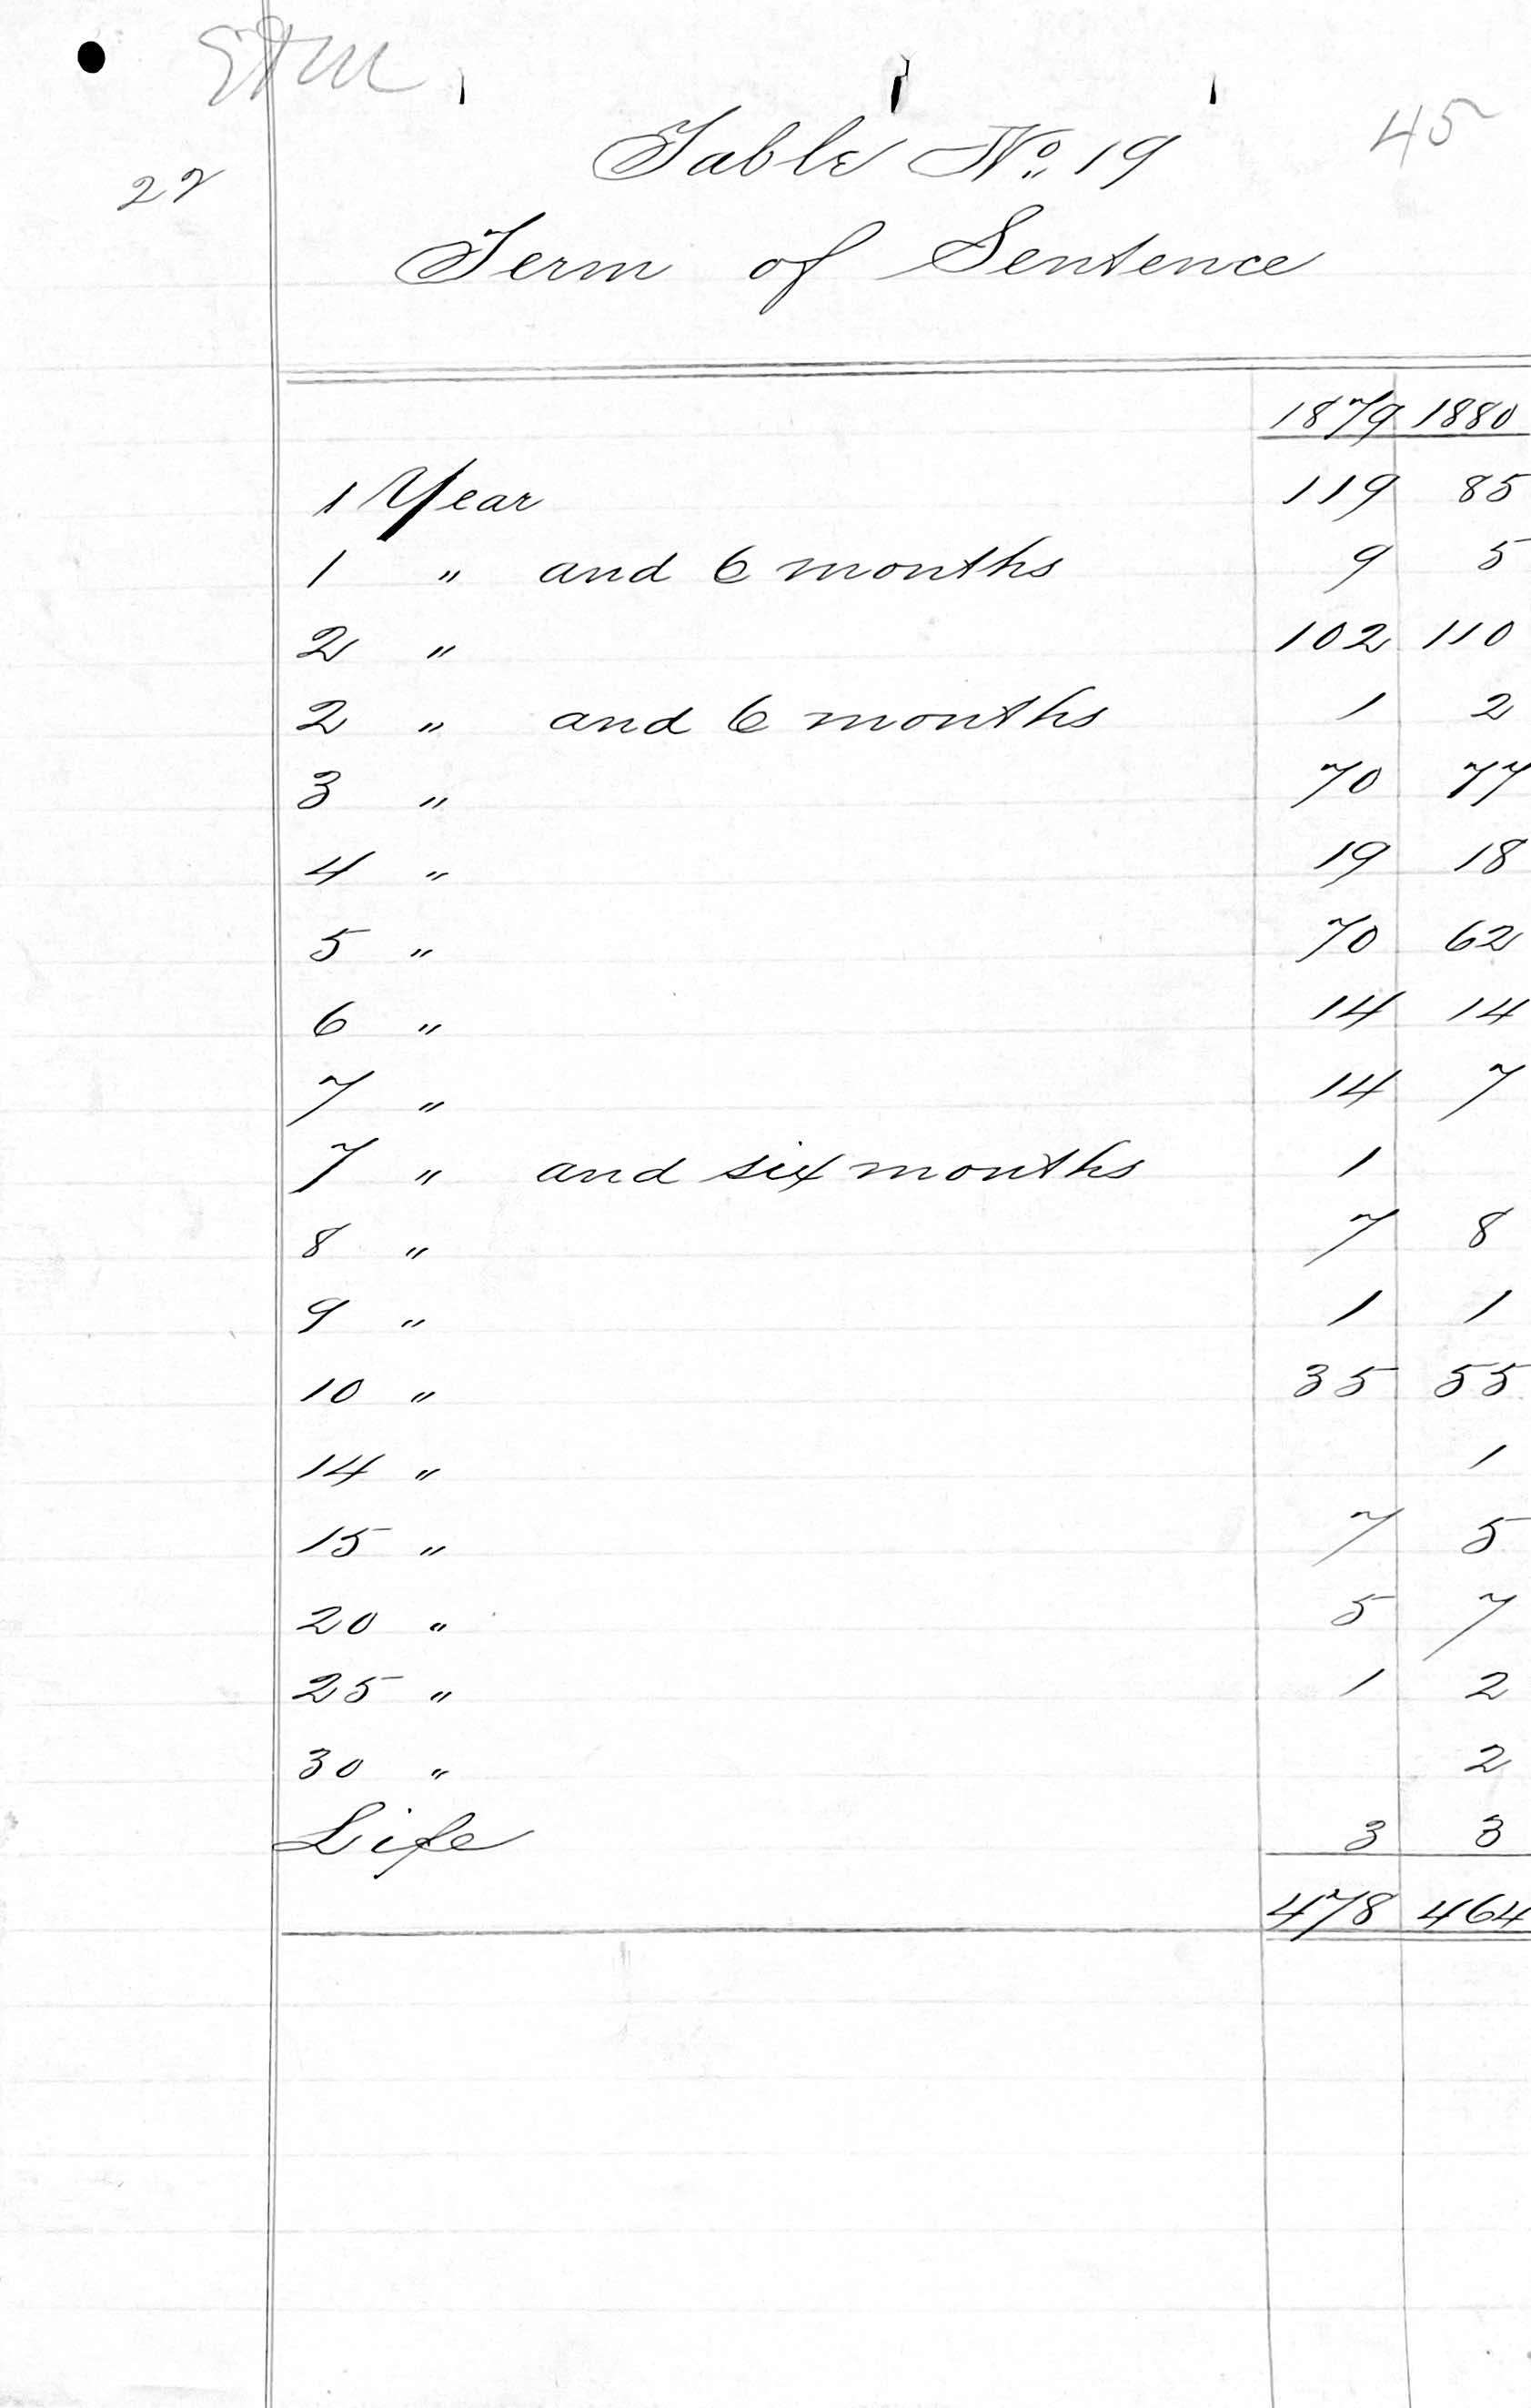 45
Table No. 19
22
Term of Sentence
1879 1880
1 Year 119 85
1 " and 6 months 9 5
2 " 102 110
2 " and 6 months 1 2
3 " 70 77
4 " 19 18
5 " 70 62
6 " 14 14
7 " 14 7
7 " and six months 1
8 " 7 8
9 " 1 1
10 " 35 55
14 " 1
15 " 7 5
20 " 5 7
25 " 1 2
30 " 2
Life 3 3
478 464